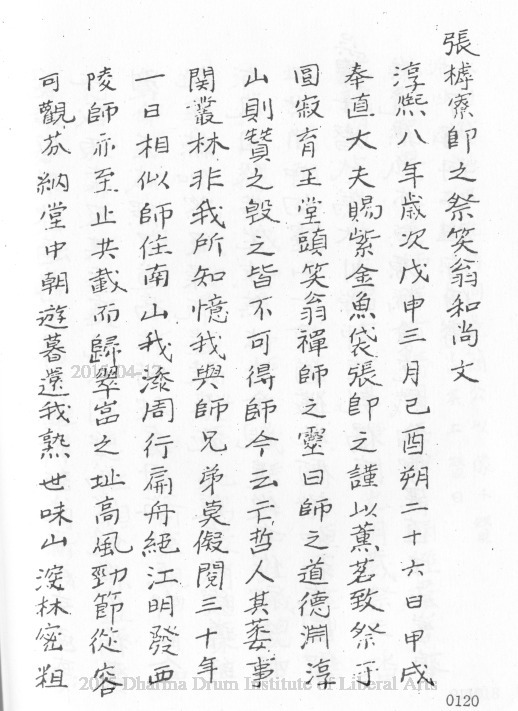 張樗寮即之祭笑翁和尚文
淳熈八年歲次戊申三月己酉朔二十六日甲戌
奉直大夫賜紫金魚袋張即之謹以薰茗致祭于
圓寂育王堂頭笑翁禪師之靈曰師之道德淵淳
山則贊之毀之皆不可得師今云亡哲人其萎事
関叢林非我所知憶我與師兄弟莫儗閱三十年
一日相似師住南山我添周行扁舟絕江明發西
陵師亦至止共載而歸翠嵓之址高風勁節從容
可觀苾納堂中朝遊暮還我熟世味山深林密粗
2010-04-12
20 Dharma Drum Institute of Liberal Arts
0120